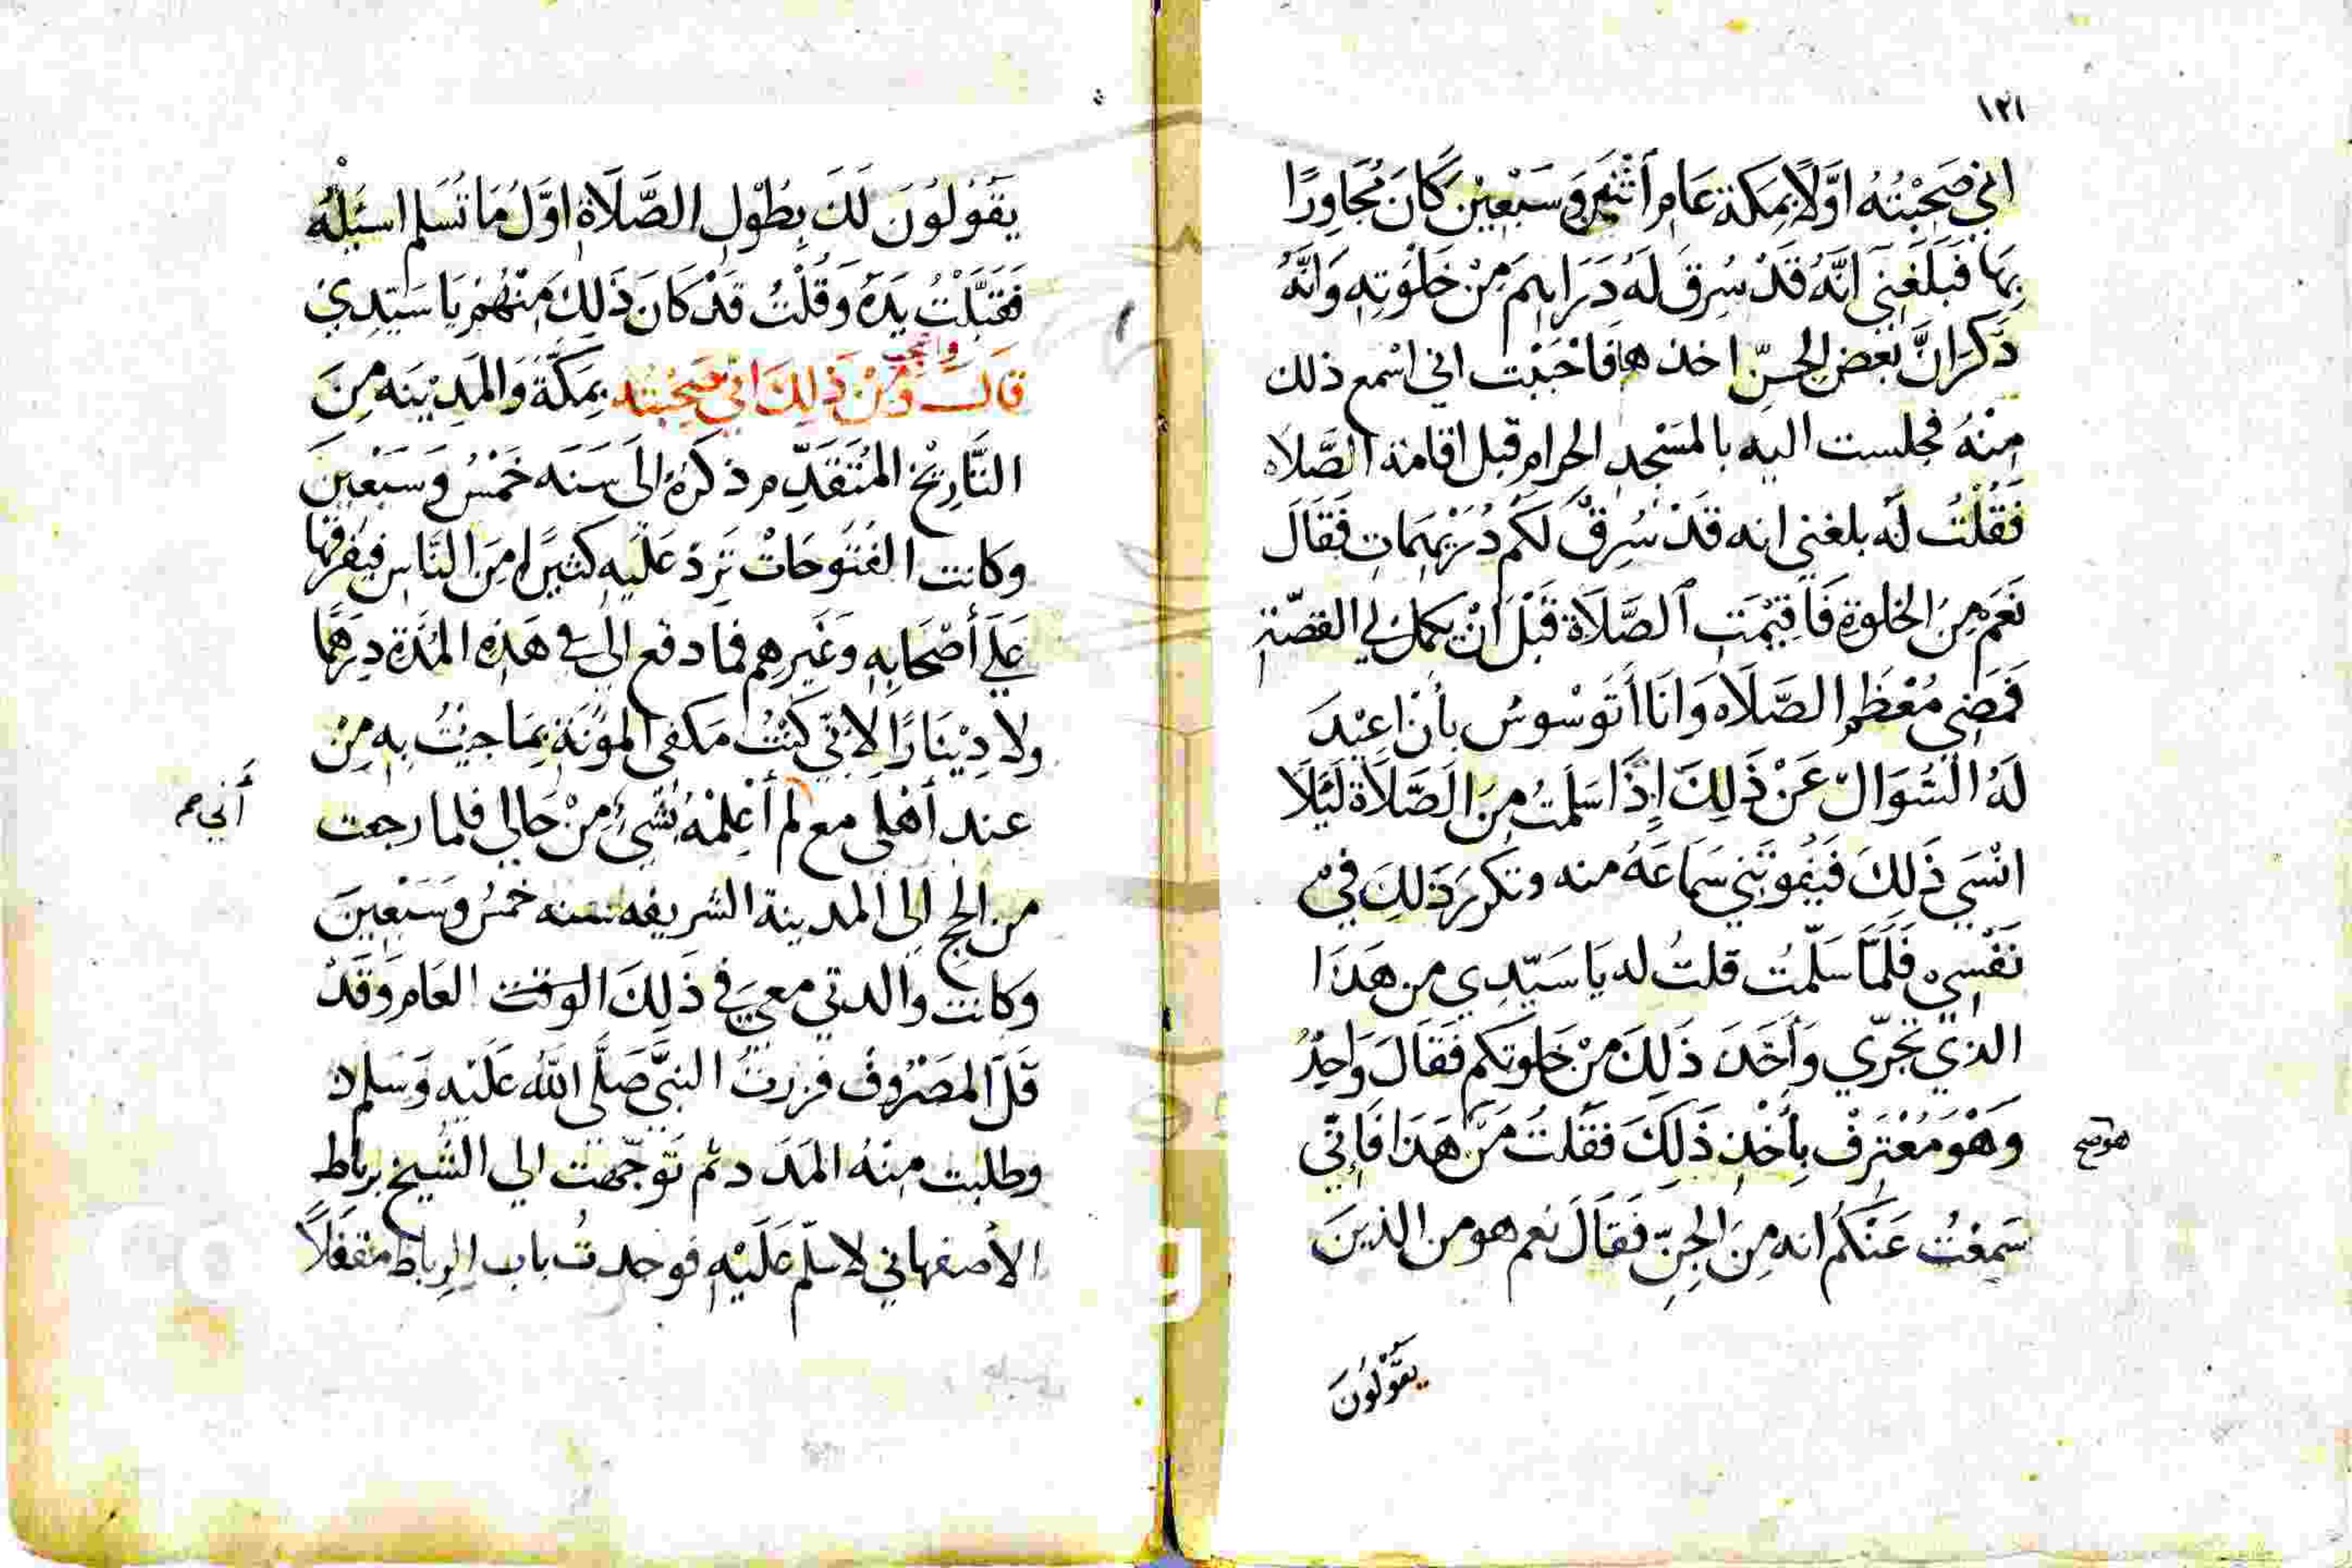 ١٢١
اني صَحِبْتُهُ اوَّلًا بِمَكة عَام اثْنَى وَسَبْعِيْن كَانَ مُجَاوِرًا
بِهَا فَبَلَغَنِي اَنَّهُ قَدْ سُرِقَ لَهُ دَرَاهِمَ مِنْ خَلْوَتِهِ وَانَّهُ
ذَكَرَ انَّ بَعْضِ الجِنّ اخذها فَاحْبَبْت اني اسْمع ذلك
مِنْهُ فجلست اليه بالمَسْجِدِ الحرام قبل اقامة الصَّلاه
فَقُلْتُ لَه بلغني انه قَدْ سُرِقَ لَكُم دُرَيْهِمَات فَقَالَ
نَعَم مِنَ الخلوة فَاُقِيْمَت الصَّلَاة قَبْلَ انْ يكمل لي القصّة
فَمَضِي مُعْظَم الصَّلَاه وَانَا أتَوسْوسُ بأن اعِيْدَ
لَهُ السُّوَال عَنْ ذَلِكَ إِذَا سَلمتُ مِنَ الصَّلَاة لَئِلَا
انْسَي ذَلِكَ فَيَفُوتَنِي سَمَاعَهُ منه وتكرر ذَلِكَ فِي
نَفْسِي فَلَمَّا سَلّمْتُ قلتُ له يَا سَيّدِي من هَذَا
الذي تَجَرّي وَأَخَذ ذَلِكَ مِنْ خَلوتكم فَقَالَ وَاحِدُ
وَهْوَ مُعْتَرِفْ بِأَخْذِ ذَلِكَ فَقَلتُ مَنْ هَذَا فَإِنّي
هو صح
سَمِعْتُ عَنْكُم انه مِنَ الجِنّ فَقَالَ نعم هو من الذينَ
يَقُولُونَ
يَقُولُونَ لَكَ بِطُوْلِ الصَّلَاةِ اوَّلُ مَا تُسَلم اسئله
فَقَبَّلْتُ يَدَهُ وَقُلْتُ قَدْ كَانَ ذَلِكَ مِنْهُمْ يَا سَيّدِيْ
واعجب
قَالَ وَمِنْ ذَلِكَ اني صَحِبْته بِمَكَّة وَالمَدِيْنَه مِنَ
التَّارِيْخ المُتَقَدّم ذكرهُ الى سَنَه خَمْسُ وَسَبْعِيْنَ
وكانت الفُتُوحَاتْ تَرِدْ عَلَيهِ كَثيرًا مِنَ النَّاس فيفرقها
عَلَى أصْحَابِهِ وَغَيرهم فما دفع الى فى هَذِهِ المُدَّة دِرْهمًا
ولا دِيْنَارًا لانّي كُنْتُ مَكفى المؤنَة بِمَا جيْتُ بِهِ مِنْ
عند أهْلى مع لم أعْلِمْهُ بشَيْءٍ مِنْ حَالي فلما رجعت
أني صح
من الحج الى المدينة الشريفه سنه خمسُ وَسَبْعِينَ
وكانت والدتي معي في ذَلِكَ الوقت العَام وَقَدْ
قَلّ المصْرُوفُ فزرتُ النبيَّ صَلَّى اللهُ عَلَيْهِ وَسَلم
وطلبت مِنْهُ المَدَد ثم تَوجّهت الي الشَّيخ برباط
الأصفهاني لاسلّم عَلَيْهِ فوجدتُ باب الرِباط مقفَلاً